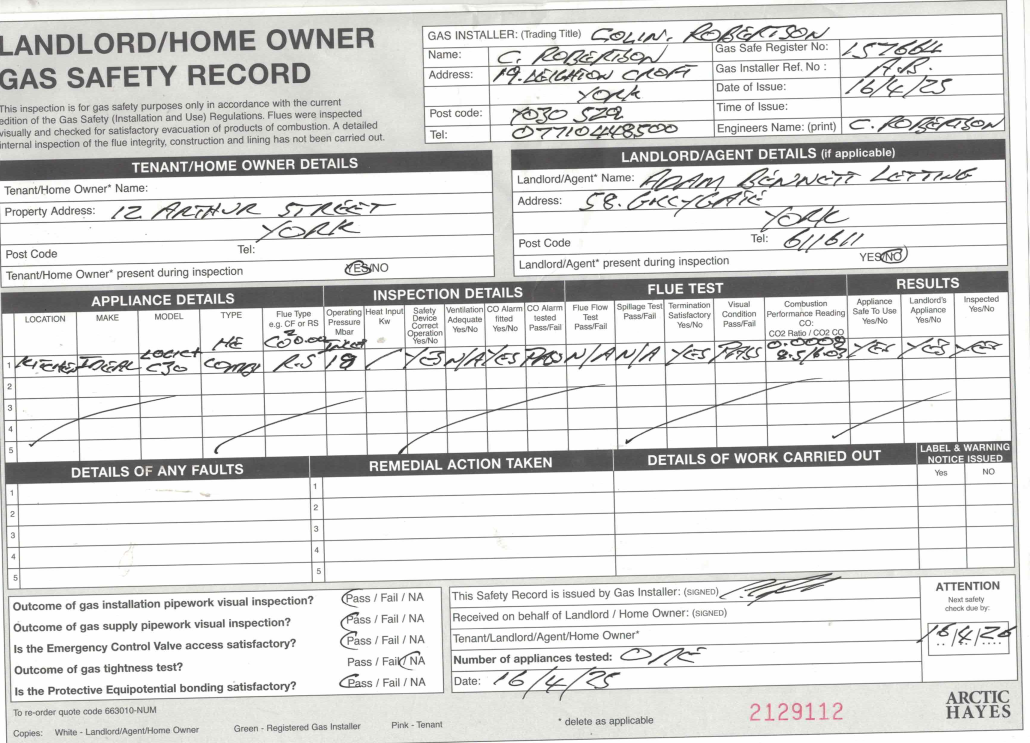 LANDLORD/HOME OWNER
GAS SAFETY RECORD
This inspection is for gas safety purposes only in accordance with the current
edition of the Gas Safety (Installation and Use) Regulations. Flues were inspected
visually and checked for satisfactory evacuation of products of combustion. A detailed
internal inspection of the flue integrity, construction and lining has not been carried out.
GAS INSTALLER: (Trading Title) COLIN. ROBERTSON
Name: C. ROBERTSON
Address: 19. LEIGHTON CROFT
YORK
Post code: YO30 5ZQ
Tel: 07710448500
Gas Safe Register No: 157664
Gas Installer Ref. No : A.B.
Date of Issue: 16/4/25
Time of Issue:
Engineers Name: (print) C. ROBERTSON
TENANT/HOME OWNER DETAILS
Tenant/Home Owner* Name:
Property Address: 12 ARTHUR STREET
YORK
Post Code Tel:
Tenant/Home Owner* present during inspection YES/NO
LANDLORD/AGENT DETAILS (if applicable)
Landlord/Agent* Name: ADAM BENNETT LETTING
Address: 58.
YORK
Post Code Tel: 611611
Landlord/Agent* present during inspection YES/NO
APPLIANCE DETAILS INSPECTION DETAILS FLUE TEST RESULTS
LOCATION MAKE MODEL TYPE Flue Type e.g. CF or RS Operating Pressure Mbar Heat Input Kw Safety Device Correct Operation Yes/No Ventilation Adequate Yes/No CO Alarm fitted Yes/No CO Alarm tested Pass/Fail Flue Flow Test Pass/Fail Spillage Test Pass/Fail Termination Satisfactory Yes/No Visual Condition Pass/Fail Combustion Performance Reading CO: CO2 Ratio / CO2 CO Appliance Safe To Use Yes/No Landlord's Appliance Yes/No Inspected Yes/No
1 KITCHEN IDEAL LOGIC+ C30 HE COMBI R.S 19 / YES N/A YES PASS N/A N/A YES PASS 0.0008 YES YES YES
2
3
4
5
DETAILS OF ANY FAULTS REMEDIAL ACTION TAKEN DETAILS OF WORK CARRIED OUT LABEL & WARNING NOTICE ISSUED
Yes NO
1 1
2 2
3 3
4 4
5 5
Outcome of gas installation pipework visual inspection? Pass / Fail / NA
Outcome of gas supply pipework visual inspection? Pass / Fail / NA
Is the Emergency Control Valve access satisfactory? Pass / Fail / NA
Outcome of gas tightness test? Pass / Fail / NA
Is the Protective Equipotential bonding satisfactory? Pass / Fail / NA
This Safety Record is issued by Gas Installer: (SIGNED)
Received on behalf of Landlord / Home Owner: (SIGNED)
Tenant/Landlord/Agent/Home Owner*
Number of appliances tested: ONE
Date: 16/4/25
ATTENTION
Next safety
check due by:
16/4/26
To re-order quote code 663010-NUM
Copies: White - Landlord/Agent/Home Owner Green - Registered Gas Installer Pink - Tenant
* delete as applicable
2129112
ARCTIC
HAYES